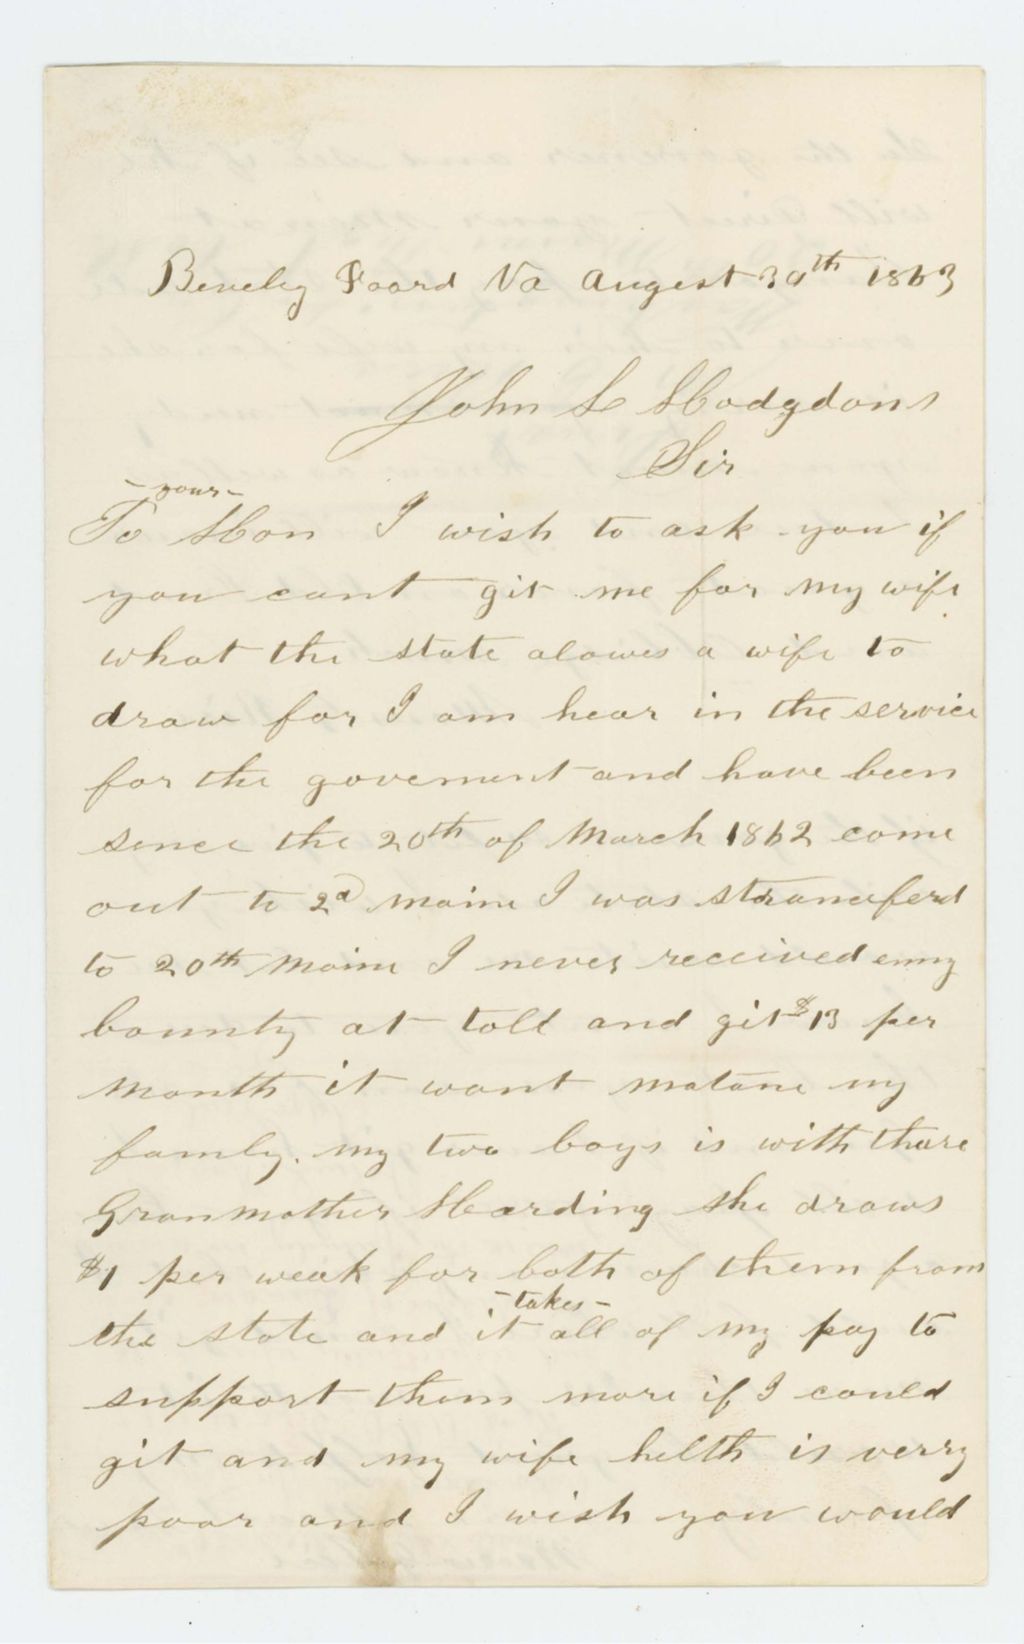 Beverly Foard Va Augest 30th 1863
John L Hodgdons
Sir
- your -
To Hon I wish to ask you if
you cant git me for my wife
what the state alowes a wife to
draw for I am hear in the service
for the goverment and have been
sence the 20th of March 1862 come
out to 2d maine I was stransferd
to 20th Maine I never received enny
bounty at toll and git $13 per
month it wont matane my
famly. my two boys is with thare
Granmother Harding she draws
$1 per weak for both of them from
- takes -
the state and it all of my pay to
support them more if I could
git and my wife helth is verry
poor and I wish you would